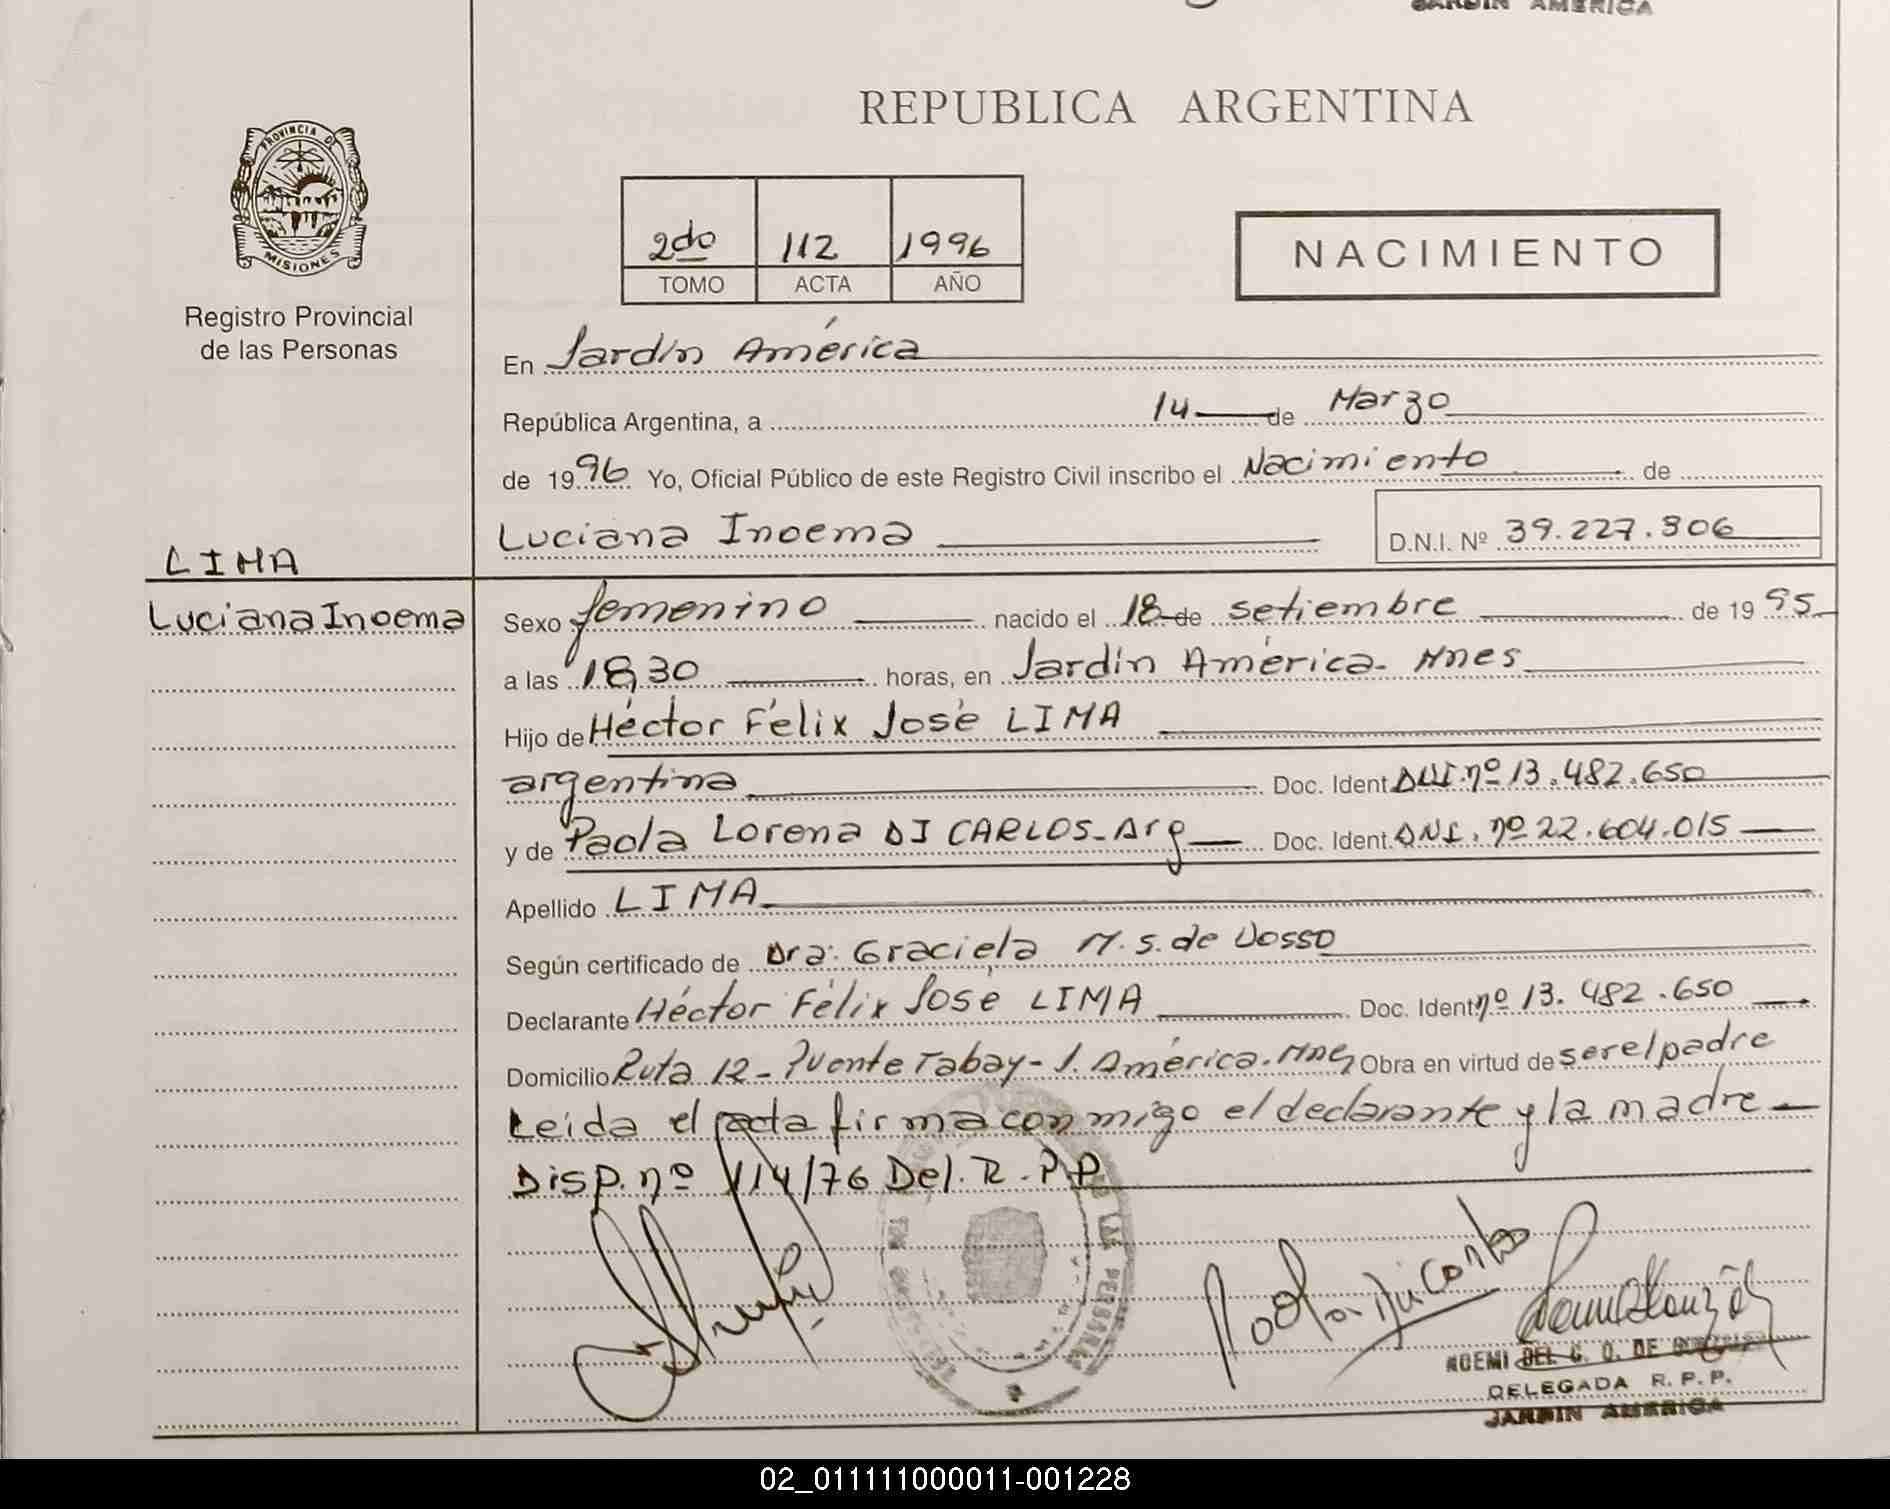 JARDIN AMERICA
REPUBLICA ARGENTINA
PROVINCIA DE
MISIONES
Registro Provincial
de las Personas
2do 112 1996
TOMO ACTA AÑO
NACIMIENTO
En Jardín América
República Argentina, a 14 de Marzo
de 1996 Yo, Oficial Público de este Registro Civil inscribo el Nacimiento de
Luciana Inoema D.N.I. Nº 39.227.806
LIMA
Luciana Inoema
Sexo femenino nacido el 18 de setiembre de 1995
a las 18,30 horas, en Jardín América- Mnes
Hijo de Héctor Félix José LIMA
argentina Doc. Ident. DNI.nº 13.482.650
y de Paola Lorena DI CARLOS-Arg Doc. Ident. DNI. nº 22.604.015
Apellido LIMA
Según certificado de Dra: Graciela M. S. de Vosso
Declarante Héctor Félix José LIMA Doc. Ident nº 13.482.650
Domicilio Ruta 12- Puente Tabay- J. América. Mnes Obra en virtud de ser el padre
Leida el acta firma conmigo el declarante y la madre
Disp. nº 114/76 Del. R.P.P.
LAS PERSONAS
Paola Di Carlos
NOEMI DEL C. O. DE GONZALEZ
DELEGADA R. P. P.
JARDIN AMERICA
02_011111000011-001228